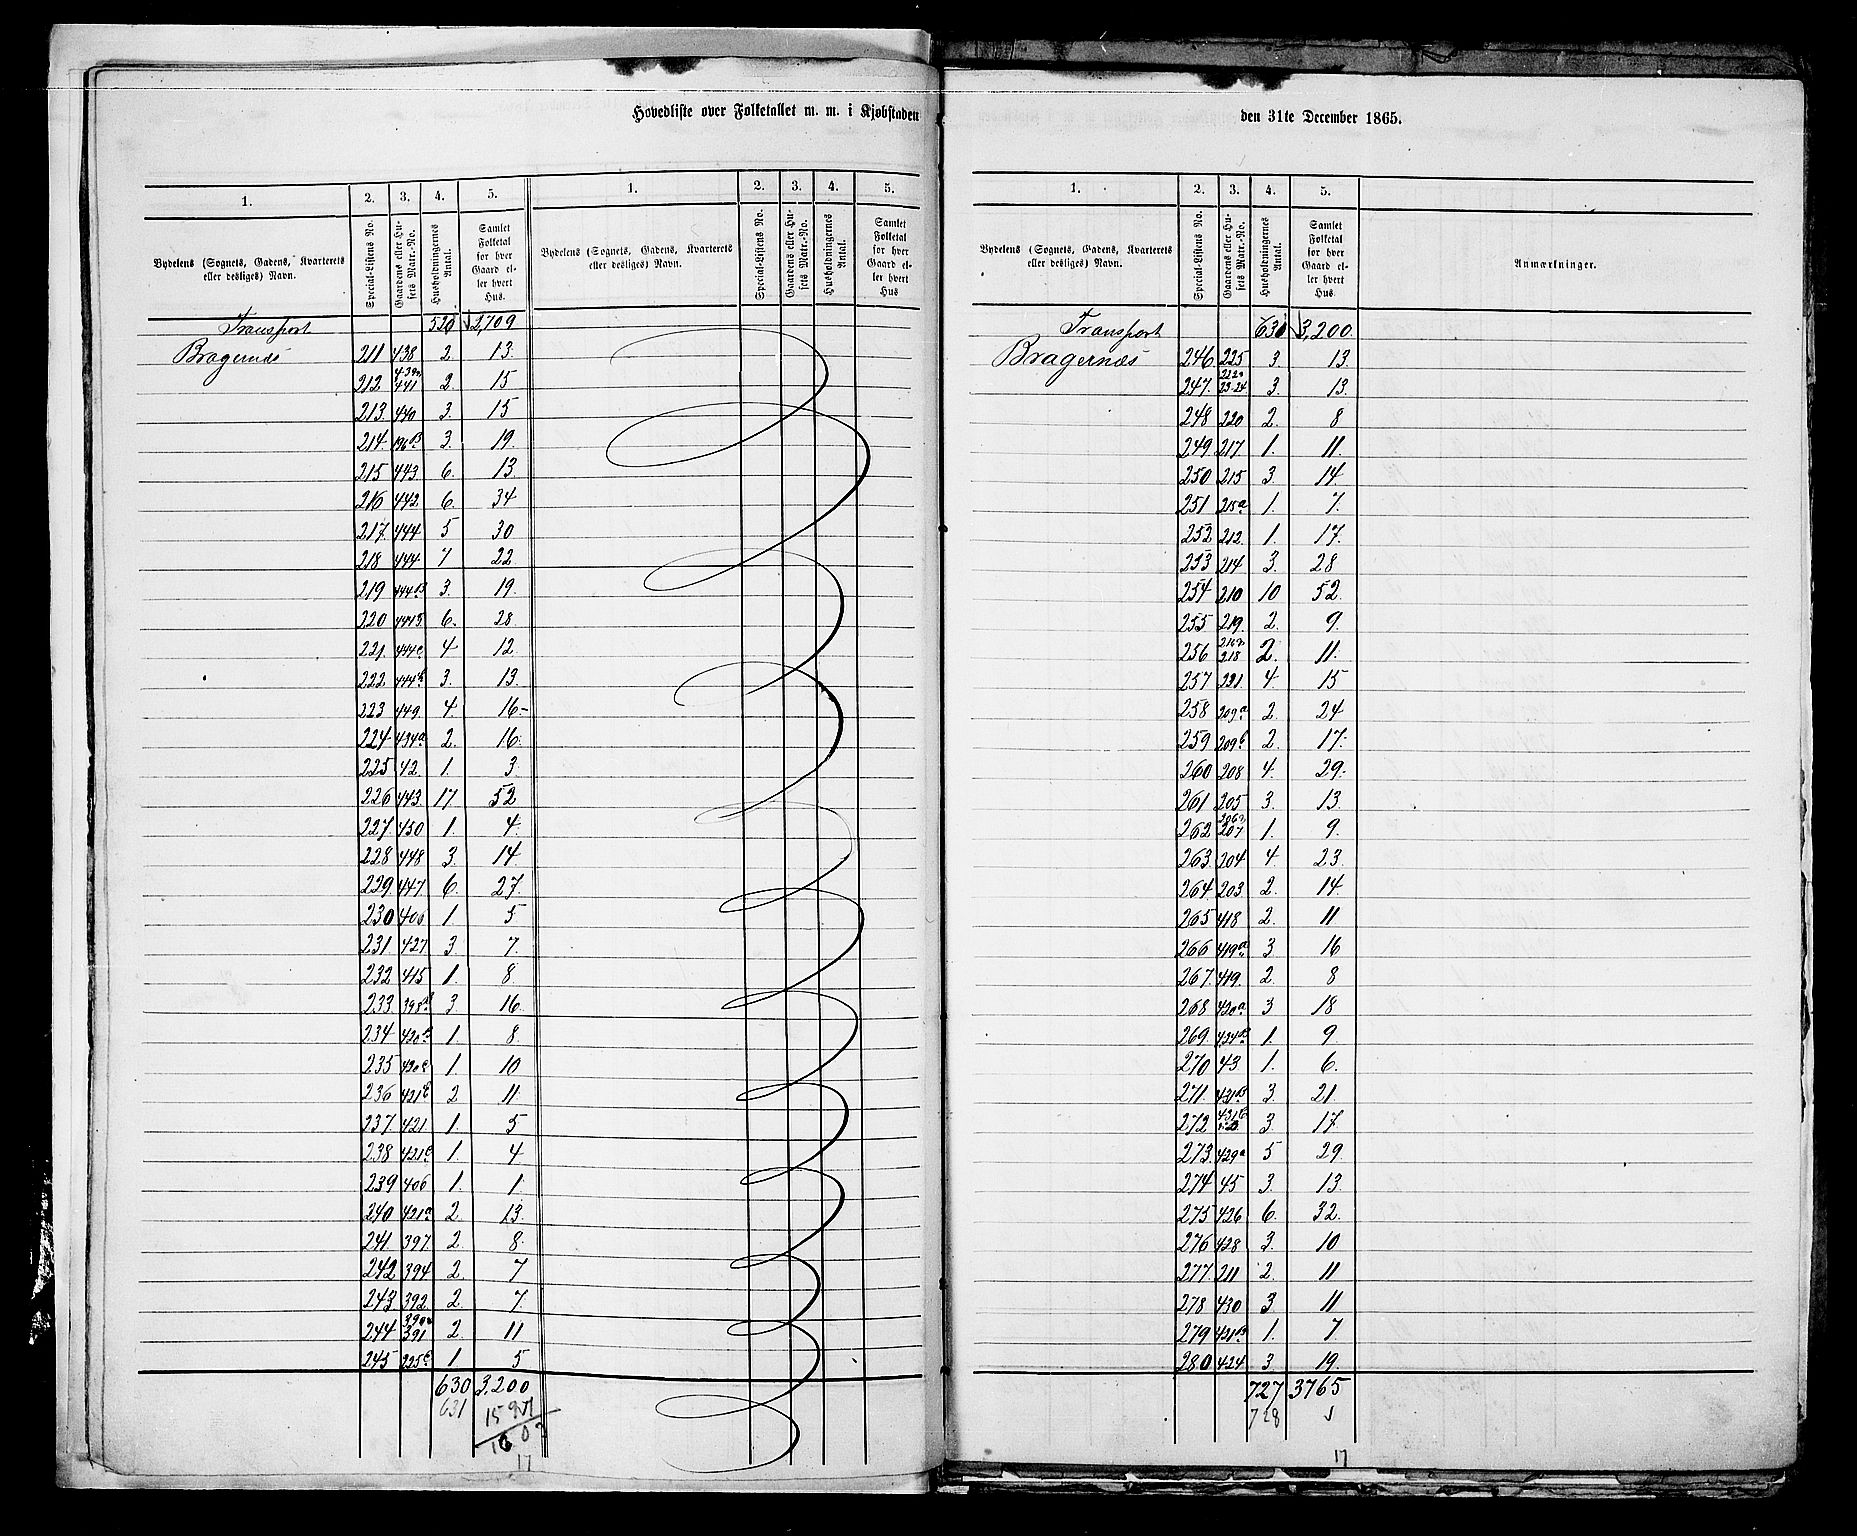 Hovedliste over Folketallet m. m. i Kjøbstaden
1. 2. 3. 4. 5. 1. 2. 3. 4. 5.
Bydelens (Sognets, Gadens, Kvarterets eller desliges) Navn. Special-Listens No. Gaardens eller Husets Matr.-No. Husholdningernes Antal. Samlet Folketal for hver Gaard eller hvert Hus. Bydelens (Sognets, Gadens, Kvarterets eller desliges) Navn. Special-Listens No. Gaardens eller Husets Matr.-No. Husholdningernes Antal. Samlet Folketal for hver Gaard eller hvert Hus
Transport 520 2,709
Bragernæs 211 438 2 13.
212 441 2. 15
213. 440 3. 15
214 196 B 3. 19.
215 443 6. 13
216 442 6. 34
217. 444 5 30
218 444 7 22
219 444 B 3. 19.
220 6. 28
221. 444 c 4 12
222 3. 13.
223 449. 4. 16-
224 434 a 2. 16.
225 42. 1. 3.
226 443. 17 52
227 450 1. 4.
228 448 3. 14
229. 447. 6. 27.
230 406 1. 5
231 427 3 7.
232 415 1. 8
233. 398 3 16.
234 420 1. 8
235 420 c 1 10
236 421 2 11.
237. 421. 1. 5
238 421 c 1. 4
239 406 1. 1.
240 421 a 2. 13.
241. 397. 2 8.
242 394 2. 7
243 392. 2. 7.
244 390 391 2 11
245 225 c 1 5
630 3.200
631
17
den 31te December 1865.
1. 2. 3. 4. 5.
Bydelens (Sognets, Gadens, Kvarterets eller desliges) Navn. Special-Listens No. Gaardens eller Husets Matr.-No. Husholdningernes Antal. Samlet Folketal for hver Gaard eller hvert Hus Anmærkninger.
Transport 630 3,200.
Bragernæs 246 225 3. 13.
247. 222 23-24 3. 13.
248 220 2. 8
249 217 1. 11.
250 215 3 14.
251 215 a 1. 7.
252 212. 1. 17.
253 214 3. 28
254 210 10 52.
255 219. 2. 9.
256 218 2. 11.
257 221 4. 15
258 209 a 2. 24
259 209 b 2. 17.
260 208 4. 29.
261 205 3. 13.
262 206 207 1. 9.
263. 204 4. 23.
264 203 2. 14.
265 418 2. 11
266 419 a 3 16
267. 419. 2 8
268 420 a 3 18
269. 424 B 1. 9
270 43 1. 6.
271. 431 B 3. 21.
272 431 3. 17
273. 429 a 5 29.
274 45 3. 13.
275 426 6. 32.
276 428 3. 10
277. 211 2. 11
278 430 3. 11
279 421 B 1. 7.
280 424 3. 19.
727 3765
728
17